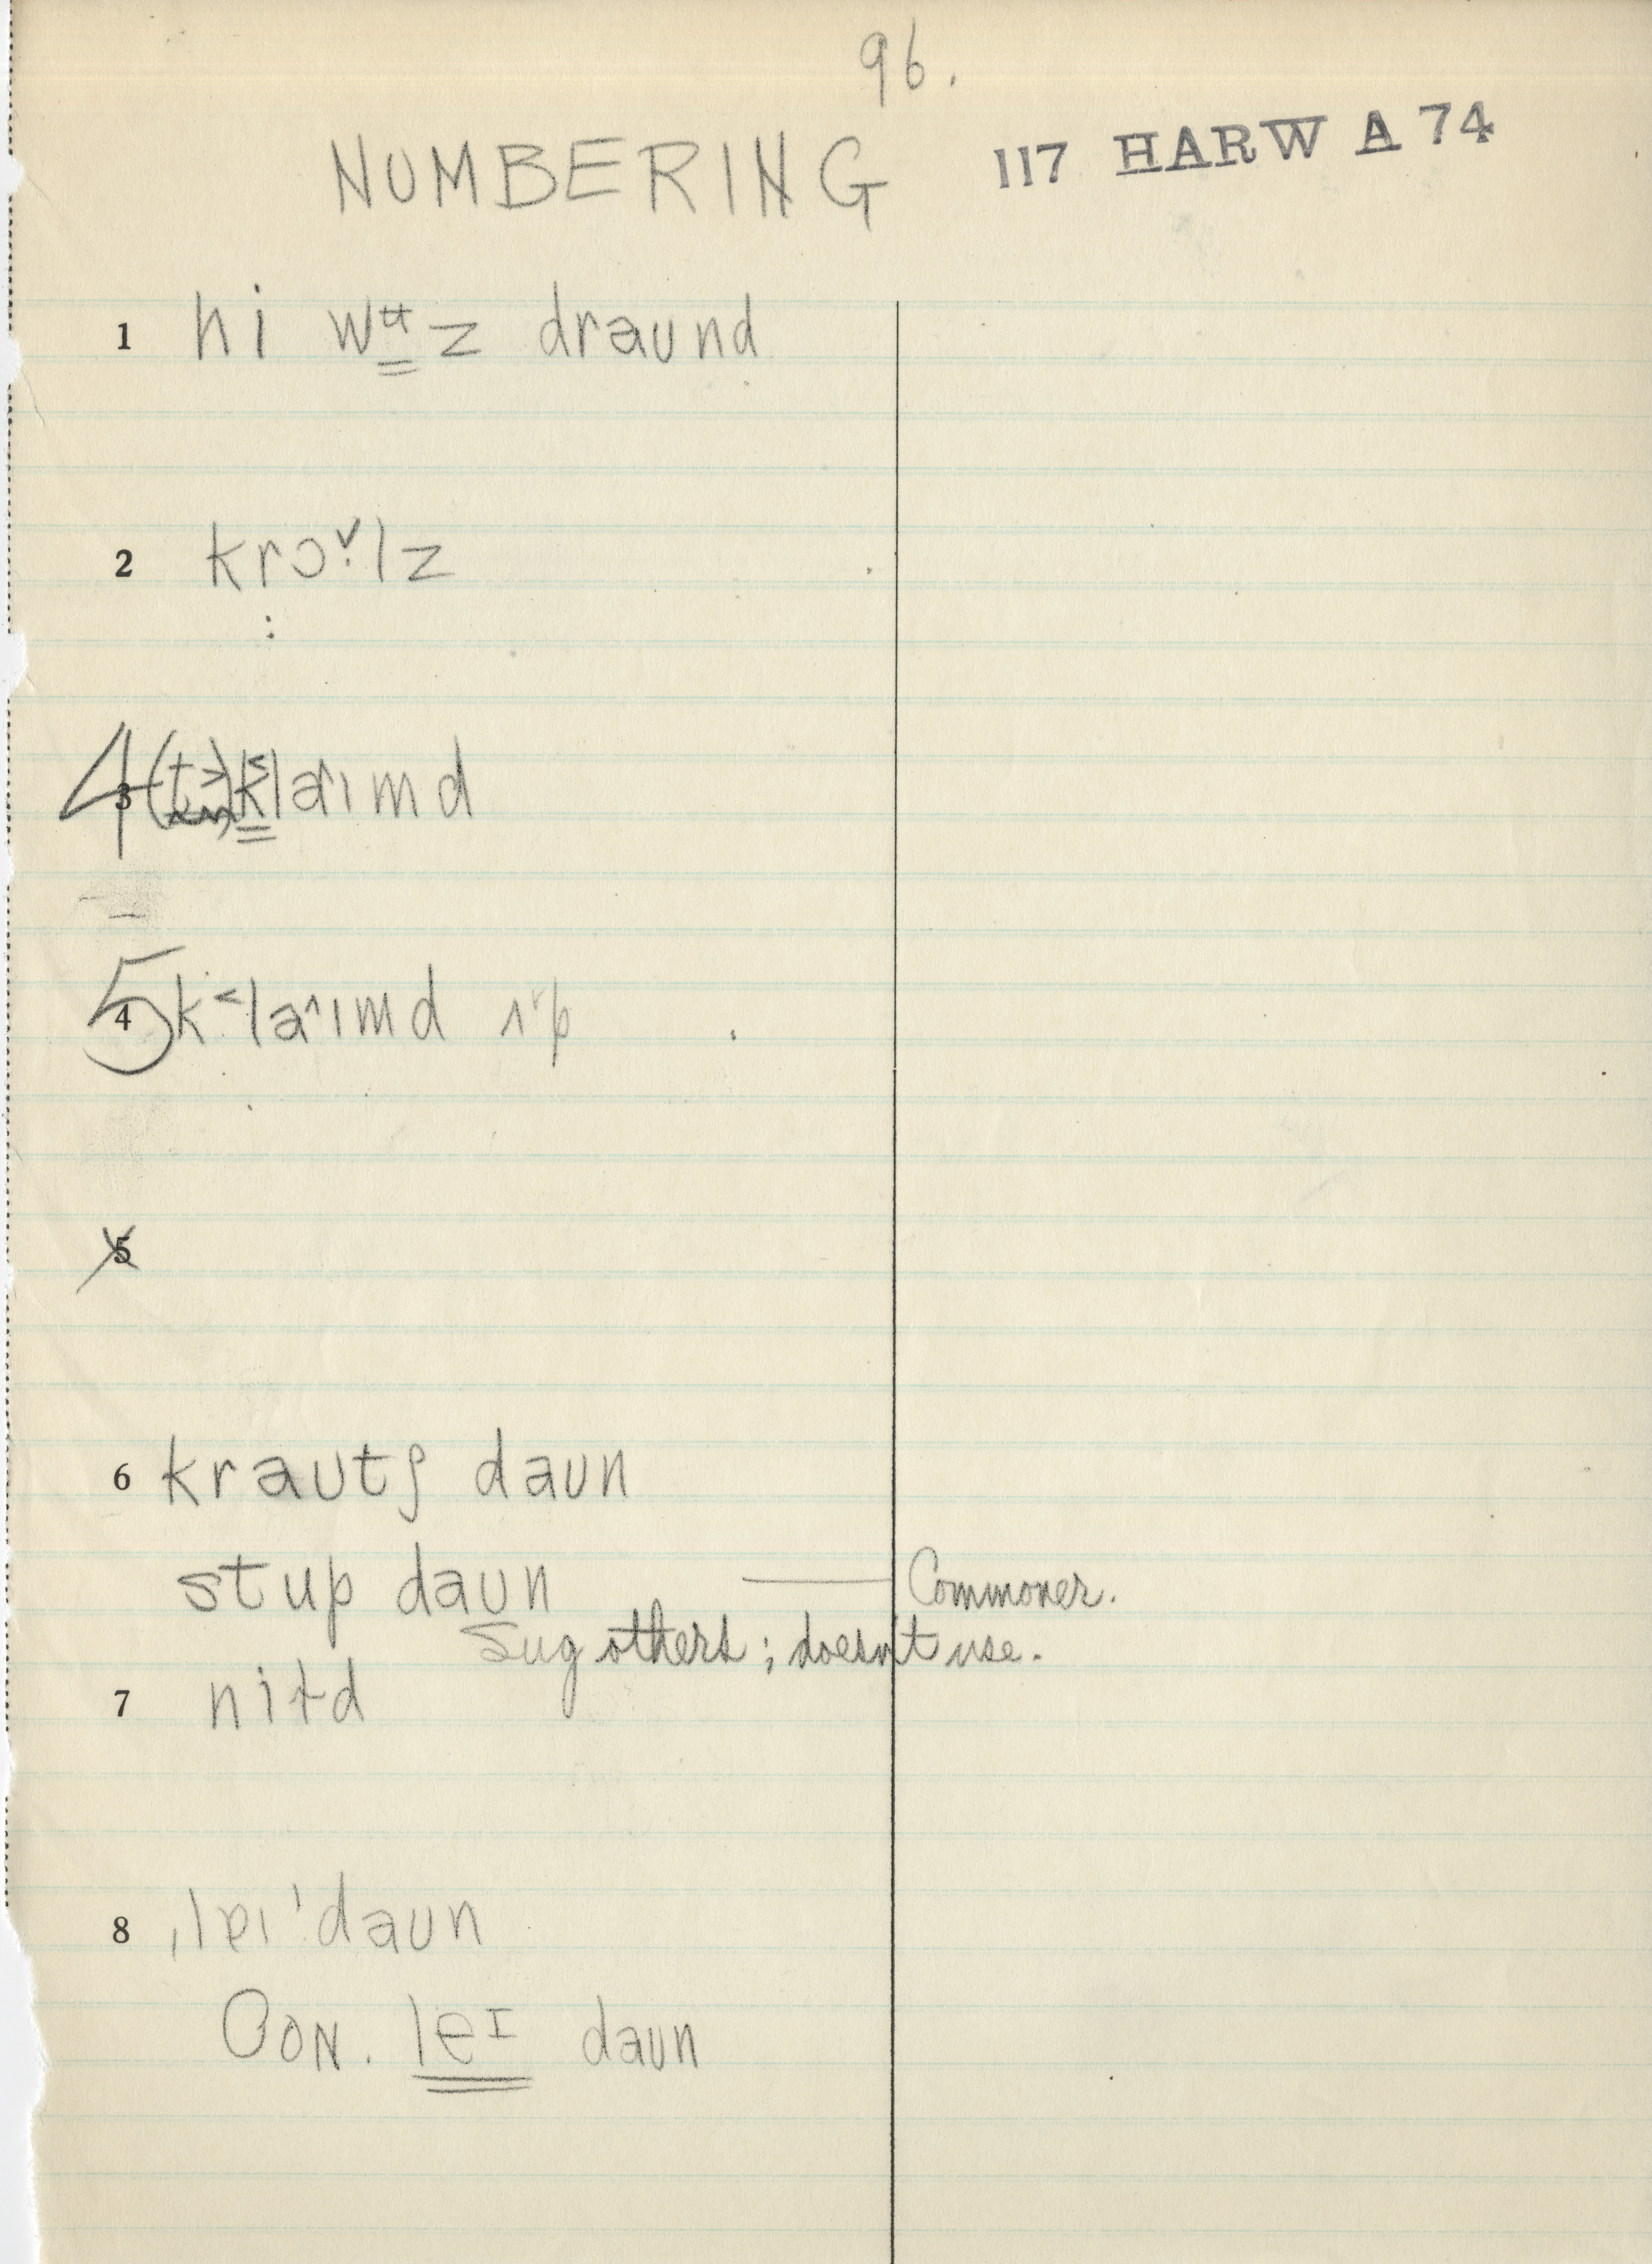 96.
NUMBERING 117 HARW A 74
1 hi wʉz draund
2 krɔ˅·lz
4 3 klaɪmd
5 4 k˂la^ɪmd ʌ˅p
5
6 krautʃ daun
stup daun — Commoner.
Sug others; doesn't use.
7 nitd
8 ˌleɪˈdaun
Con. leɪ daun